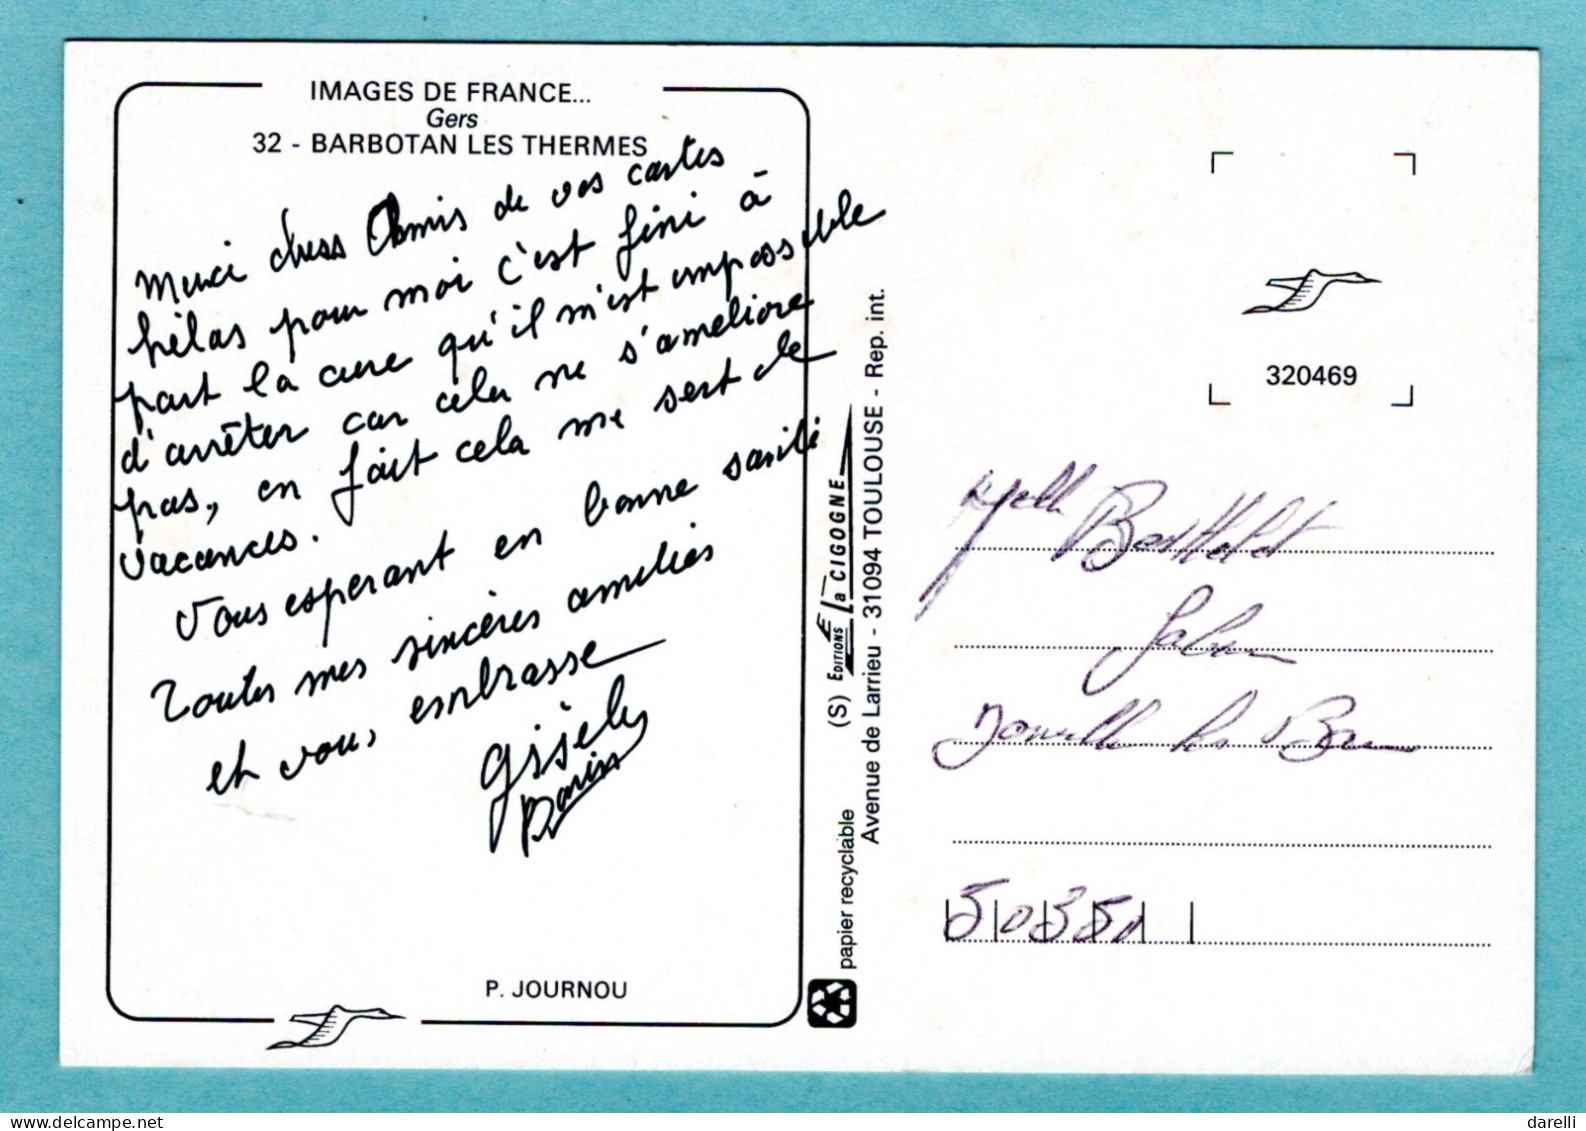 IMAGES DE FRANCE...
Gers
32 - BARBOTAN LES THERMES
Merci chers Amis de vos cartes
hélas pour moi c'est fini à
part la cure qu'il m'est impossible
d'arrêter car cela ne s'améliore
pas, en fait cela me sert de
vacances.
Vous esperant en bonne santé
Toutes mes sincères amitiés
et vous embrasse
Gisèle
P. JOURNOU
papier recyclable
(S) EDITIONS La CIGOGNE
Avenue de Larrieu - 31094 TOULOUSE - Rep. int.
320469
Melle Berthelot
Jouville les Bain
50350
darelli